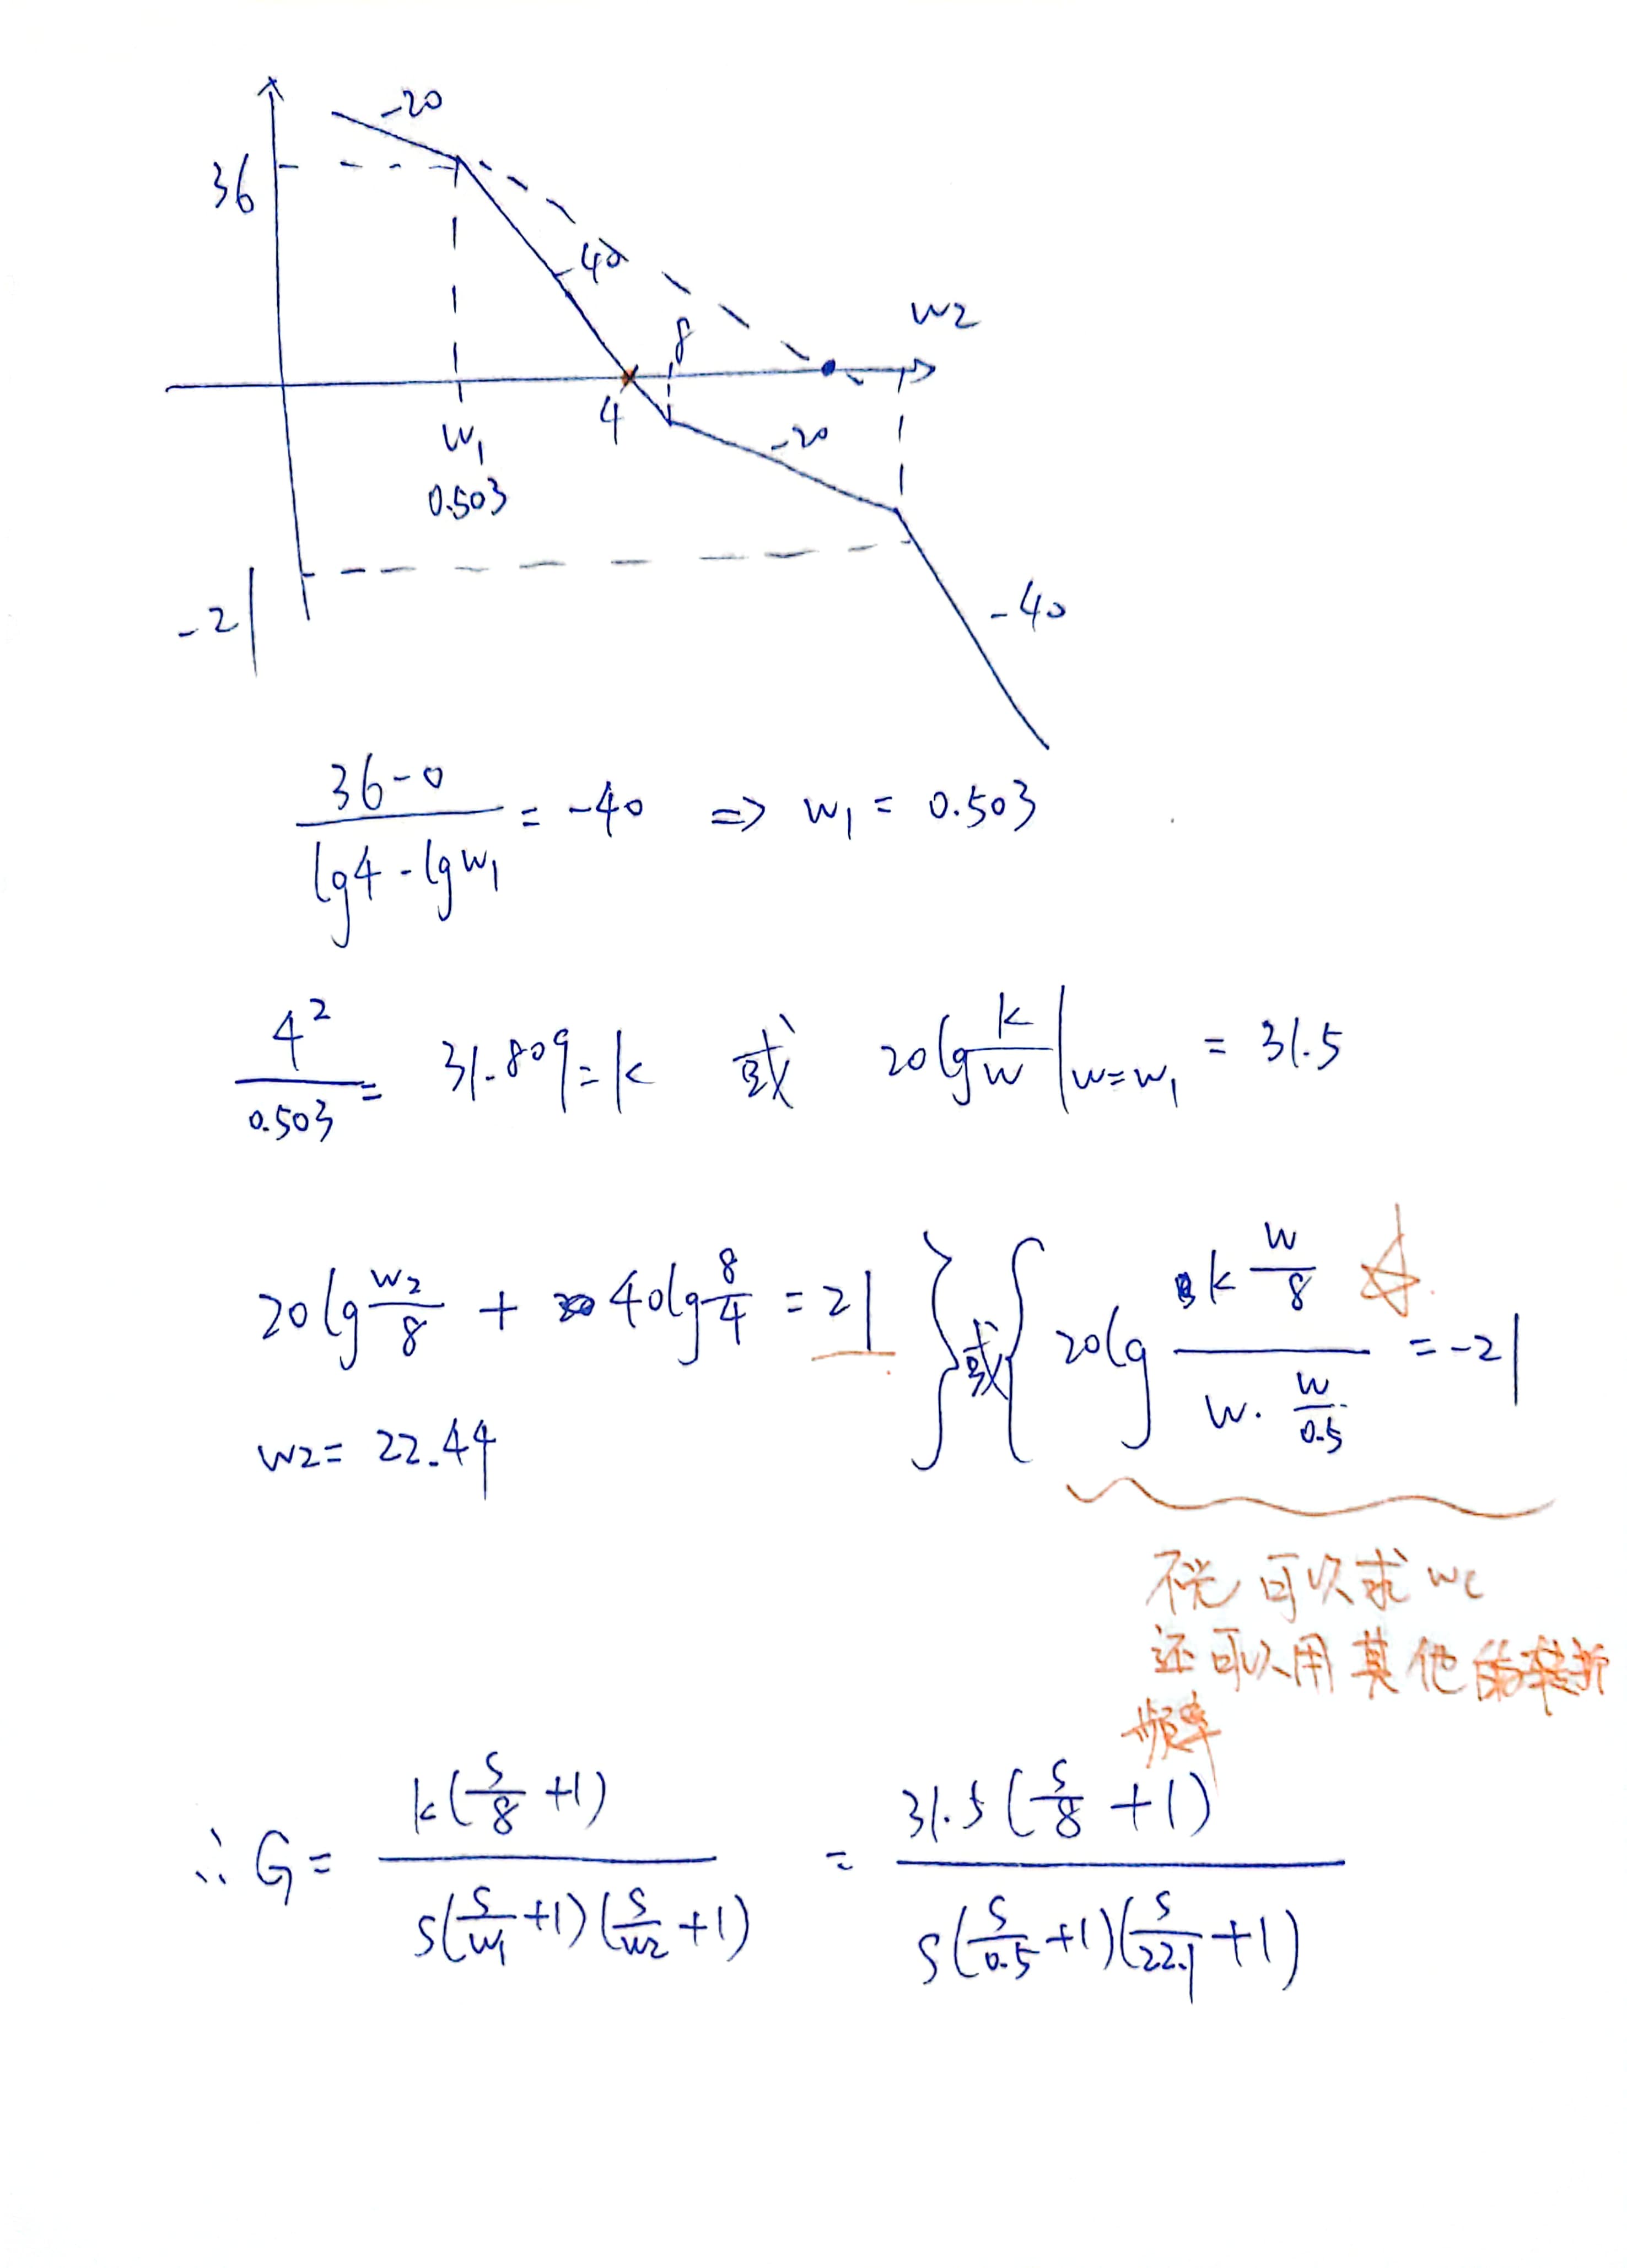 -20
36
-40
8
w2
4
w₁
0.503
-20
-21
-40
(36-0)/(lg4-lgw₁) = -40 => w₁ = 0.503
4²/0.503 = 31.809 = k 或 20lg k/w |w=w₁ = 31.5
20lg w₂/8 + 40lg 8/4 = 21 } 或 { 20lg (k w/8)/(w · w/0.5) = -21
w2 = 22.44
可以求 wc
还可以用其他的转折
频率
∴ G = k(s/8 +1)/(s(s/w₁ +1)(s/w2 +1)) = 31.5(s/8 +1)/(s(s/0.5 +1)(s/22.1 +1))